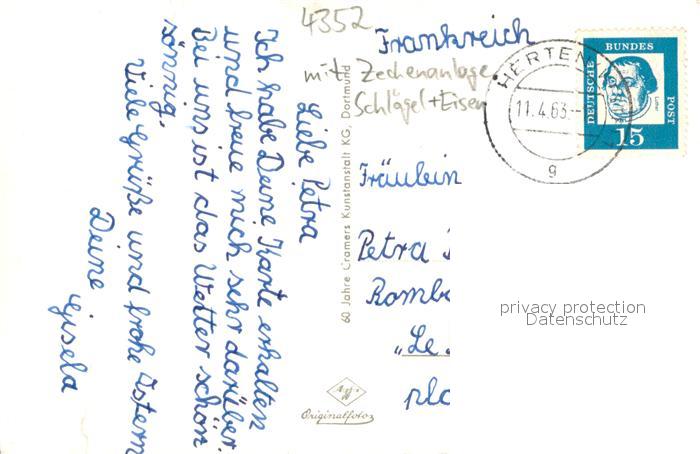 4352
Frankreich
mit Zechenanlage
Schlägel + Eisen
Liebe Petra
Ich habe Deine Karte erhalten
und freue mich sehr darüber.
Bei uns ist das Wetter schön
sonnig.
Viele Grüße und frohe Ostern
Deine
Gisela
60 Jahre Cramers Kunstanstalt KG, Dortmund
Originalfoto
Fräulein
Petra
Romb
„Le
pla
HERTEN
11.4.63.
g
DEUTSCHE
BUNDES
POST
15
privacy protection
Datenschutz